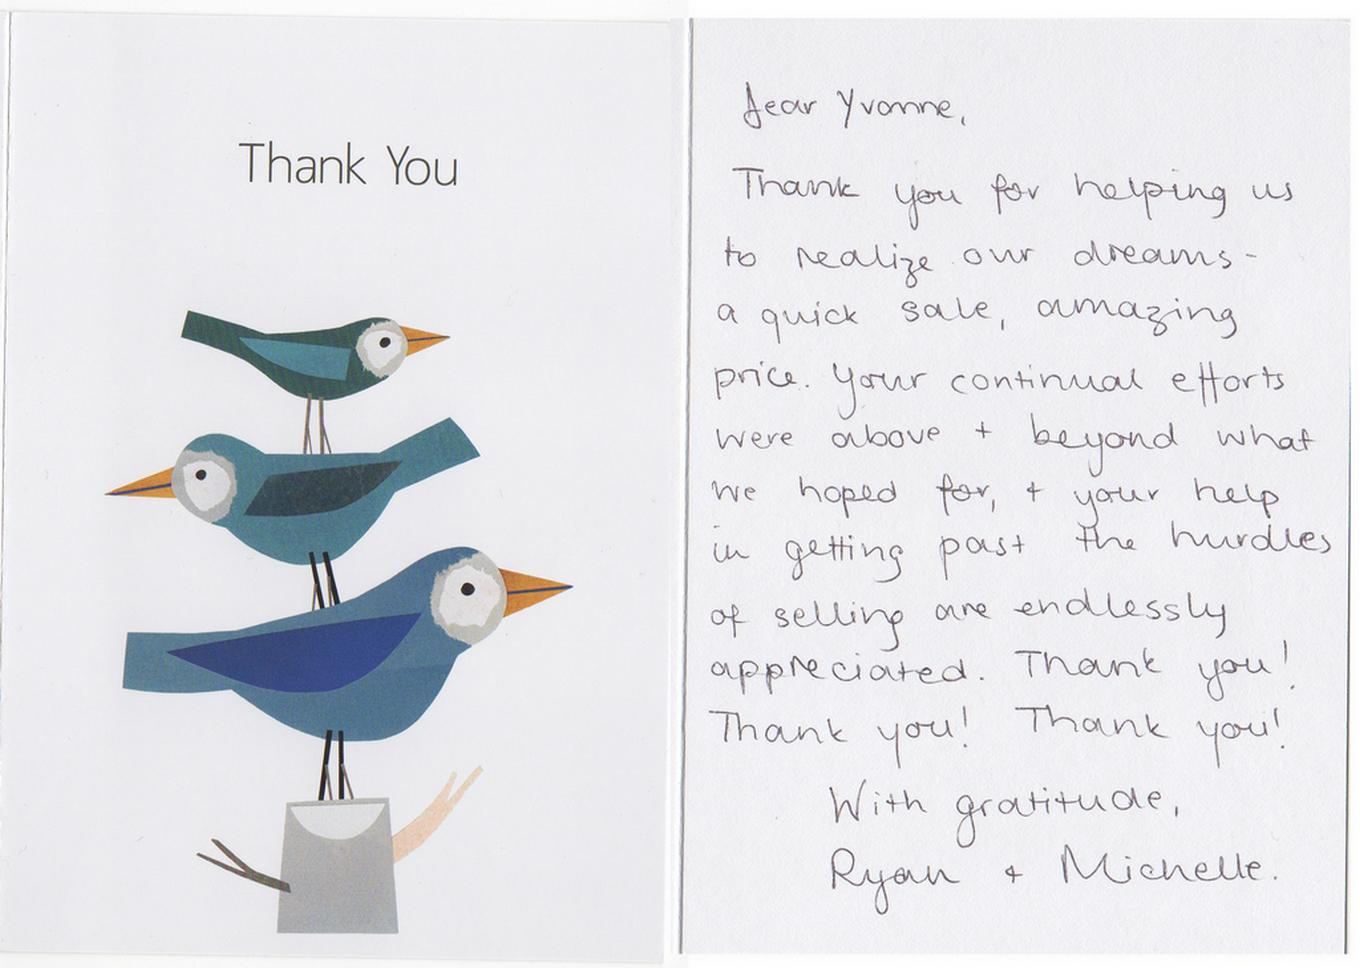 Thank You
Dear Yvonne,
Thank you for helping us
to realize our dreams-
a quick sale, amazing
price. Your continual efforts
were above + beyond what
we hoped for, + your help
in getting past the hurdles
of selling are endlessly
appreciated. Thank you!
Thank you! Thank you!
With gratitude,
Ryan + Michelle.